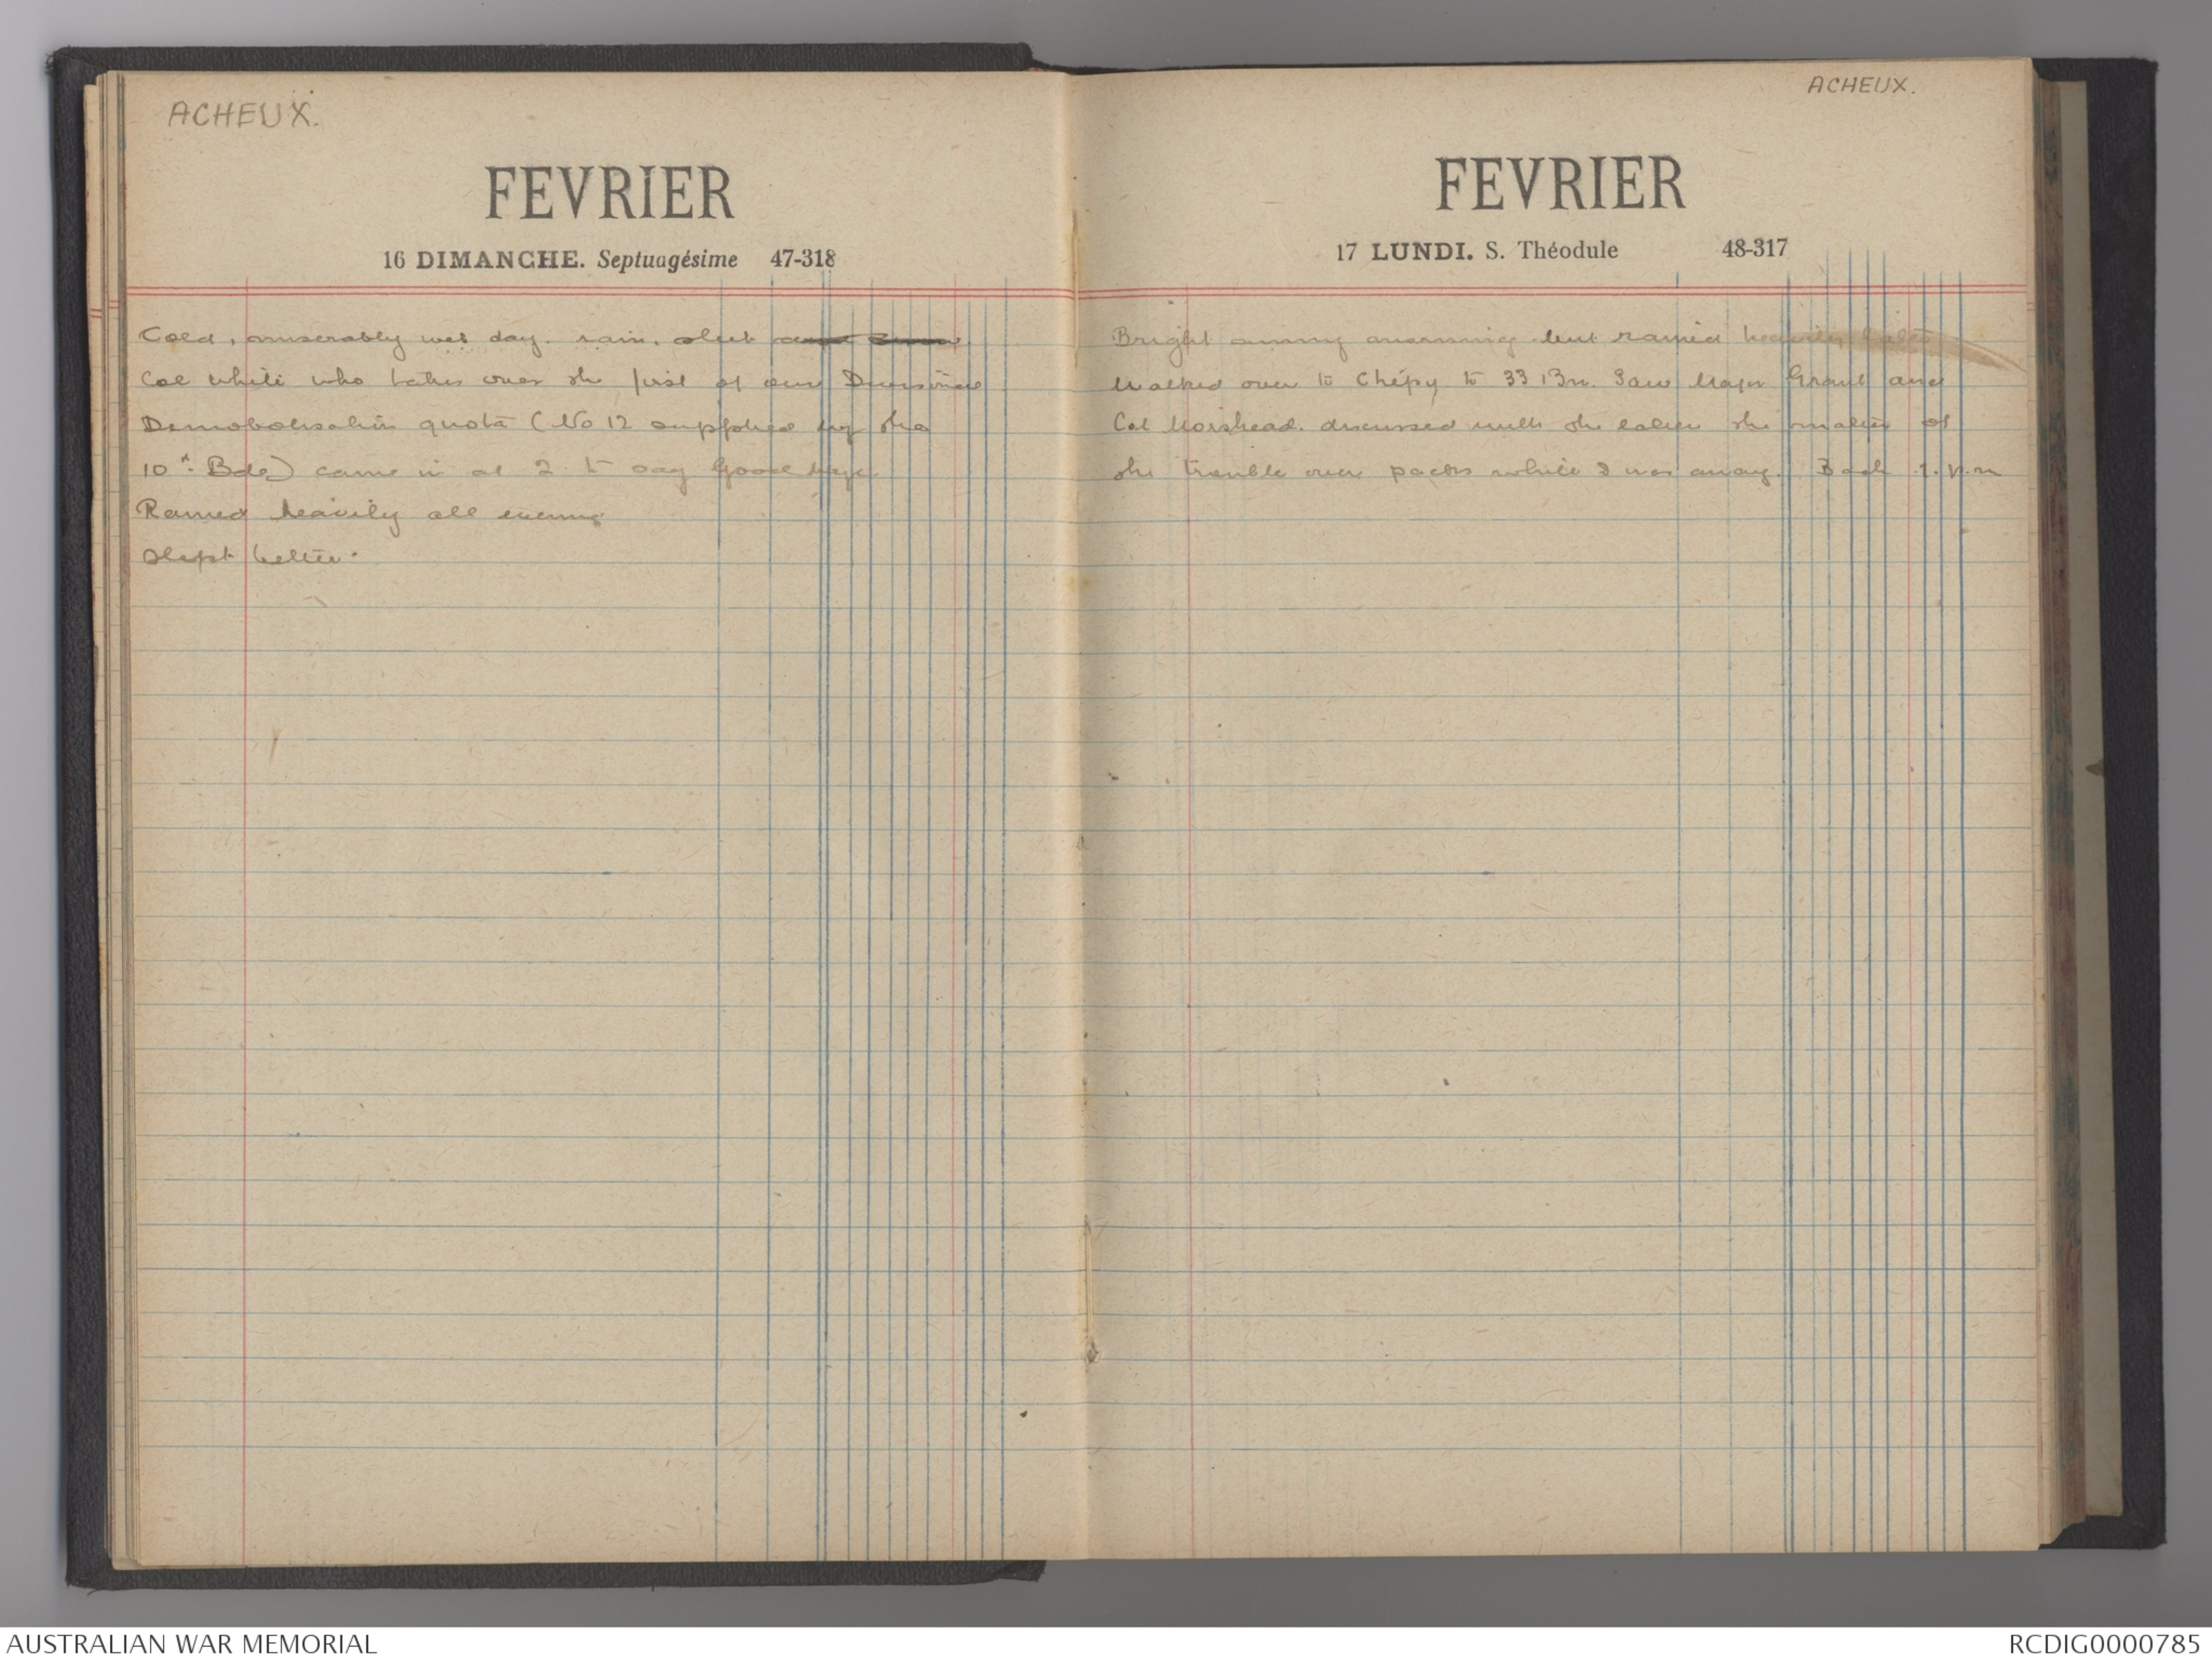 ACHEUX.
FEVRIER
16 DIMANCHE. Septuagésime 47-318
Cold, miserably wet day. rain, sleet and snow
Col White who takes over the first of our Divisional
Demobolisation quota (No 12 supplied by the
10th Bde) came in at 2 to say Good bye.
Rained heavily all evening
Slept better.
ACHEUX.
FEVRIER
17 LUNDI. S. Théodule 48-317
Bright sunny morning but rained heavily later
Walked over to Chépy to 33 Bn. Saw Major Grant and
Col Morshead. discussed with the latter the matter of
the trouble over packs while I was away. Back 1. p.m
AUSTRALIAN WAR MEMORIAL
RCDIG0000785